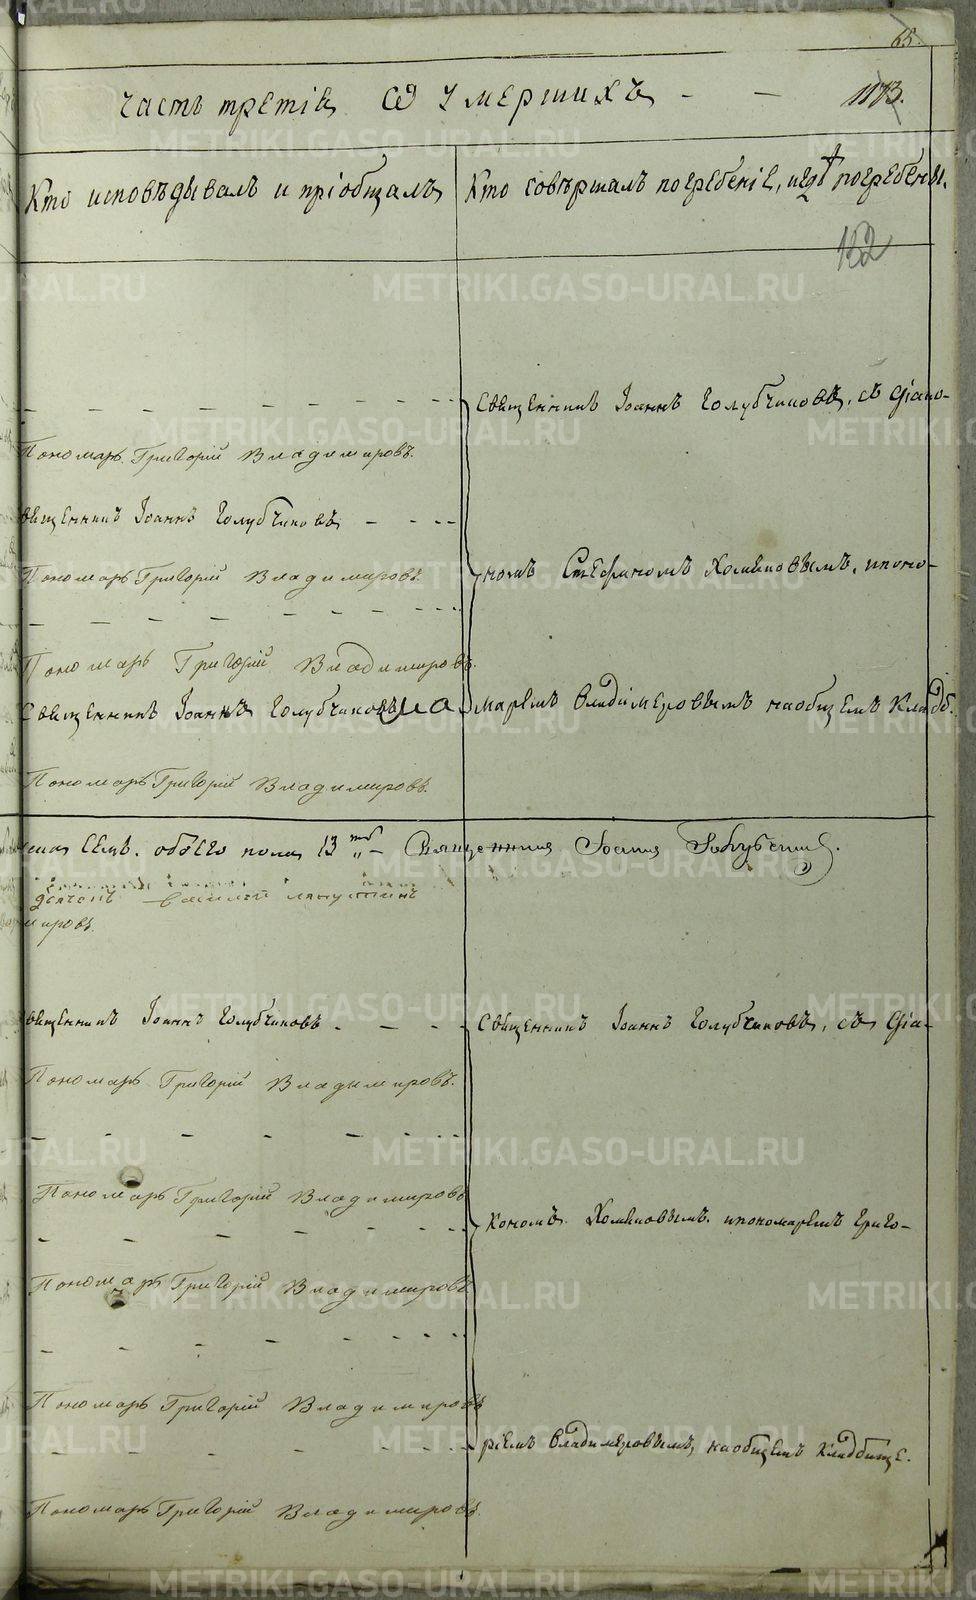 65.
часть третія Ѿ умершихъ - - 1173.
Кто исповѣдывалъ и пріобщалъ
Кто совѣршалъ погребеніе, и гдѣ погребены.
132
Свѣщенникъ Іоаннъ Голубчиковъ, съ діако-
Пономарь Григорій Владимировъ.
вѣщенникъ Іоаннъ Голубчиковъ
Пономарь Григорій Владимировъ
номъ Стефаномъ Хомяковымъ, ипоно-
Пономарь Григорій Владимировъ.
Свѣщенникъ Іоаннъ Голубчиковъ
маремъ Владимеровымъ наобщемъ Кладб.
Пономарь Григорій Владимировъ.
обоего пола 13 Священникъ Іоаннъ
дьячекъ василей
мировъ.
вѣщенникъ Іоаннъ Голубчиковъ
Свѣщенникъ Іоаннъ Голубчиковъ, съ діа-
Пономарь Григорій Владимировъ.
Пономарь Григорій Владимировъ
кономъ Хомяковымъ. ипономаремъ григо-
Пономарь Григорій Владимировъ
Пономарь Григорій Владимировъ
ріемъ Владимеровымъ, наобщемъ Кладбище.
Пономарь Григорій Владимировъ.
METRIKI.GASO-URAL.RU